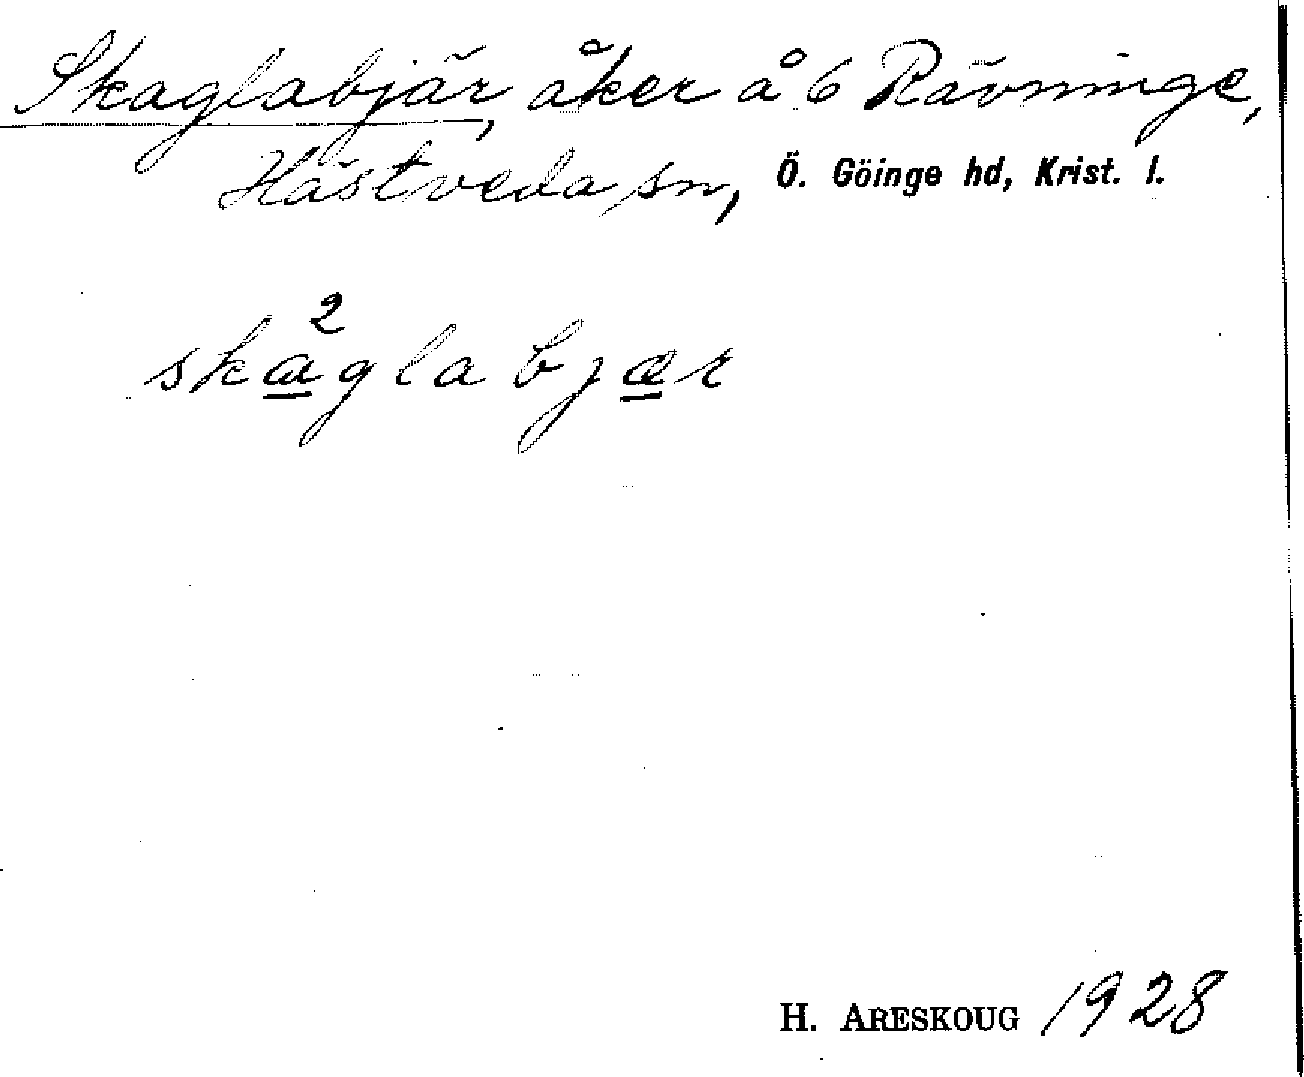 Skaglabjär, åker å 6 Rävninge,
Hästveda sn, Ö. Göinge hd, Krist. l.
2
skaglabjær
H. ARESKOUG 1928